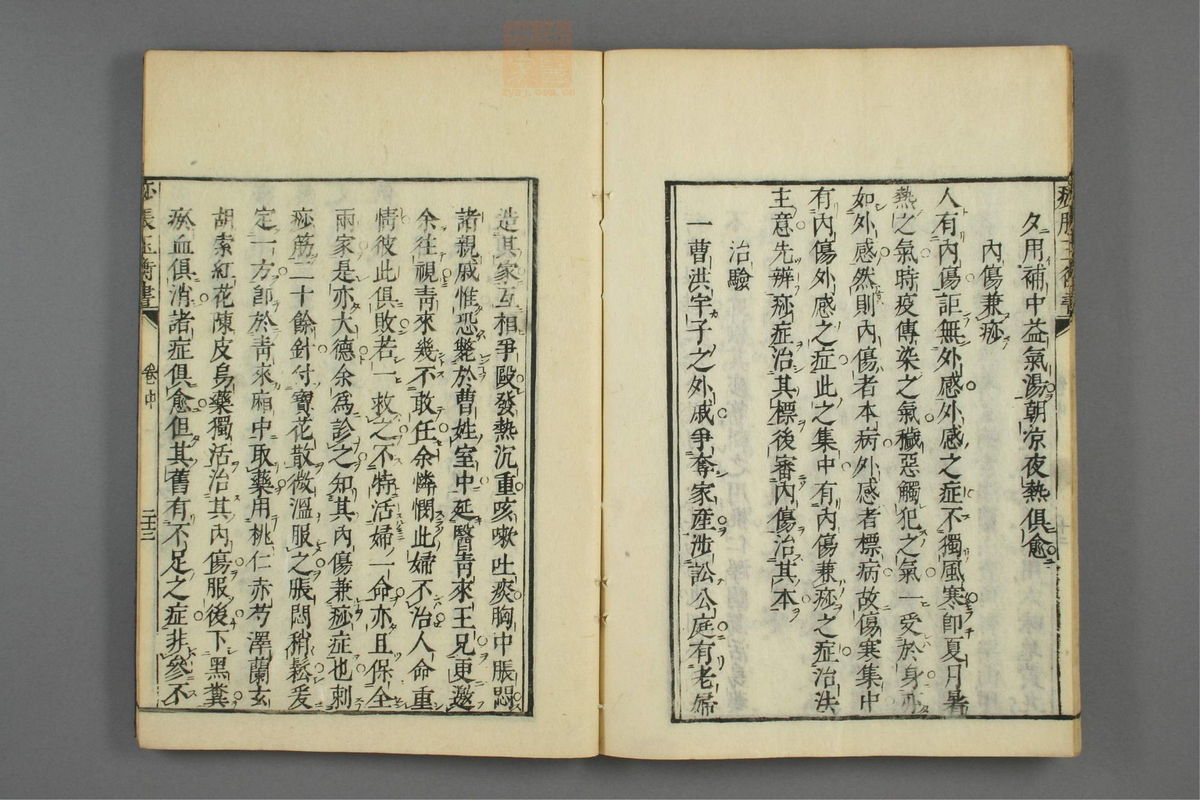 久用補中益氣湯朝凉夜熱俱愈
內傷兼痧
人有內傷詎無外感外感之症不獨風寒卽夏月暑
熱之氣時疫傳染之氣穢惡觸犯之氣一受於身亦
如外感然則內傷者本病外感者標病故傷寒集中
有內傷外感之症此之集中有內傷兼痧之症治法
主意先辨痧症治其標後審內傷治其本
治驗
一曹洪宇子之外戚爭奪家産涉訟公庭有老婦
造其家互相爭毆發熱沉重咳嗽吐痰胸中脹悶
諸親戚惟恐斃於曹姓室中延醫靑來王兄更邀
余往視靑來幾不敢任余憐憫此婦不治人命重
情彼此俱敗若一救之不特活婦一命亦且保全
兩家是亦大德余爲診之知其內傷兼痧症也刺
痧筋二十餘針付寶花散微溫服之脹悶稍鬆爰
定一方卽於靑來廂中取藥用桃仁赤芍澤蘭玄
胡索紅花陳皮烏藥獨活治其內傷服後下黑糞
瘀血俱消諸症俱愈但其舊有不足之症非參不
痧脹玉衡書
卷中
二十三